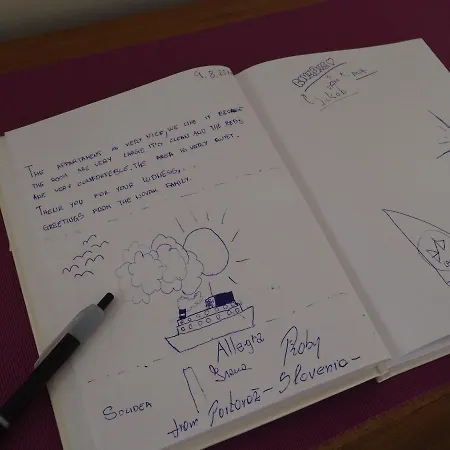 9.8.
THE APPARTMENT IS VERY NICE, WE LIKE IT BECAUSE
THE ROOM ARE VERY LARGE, IT'S CLEAN AND THE BEDS
ARE VERY COMFORTEBLE. THE AREA IS VERY QUIET.
THANK YOU FOR YOUR KIDNESS...
GREETINGS FROM THE NOVAK FAMILY.
Allegra
Roby
SOLIDEA
from Portorož - Slovenia -
Jakob